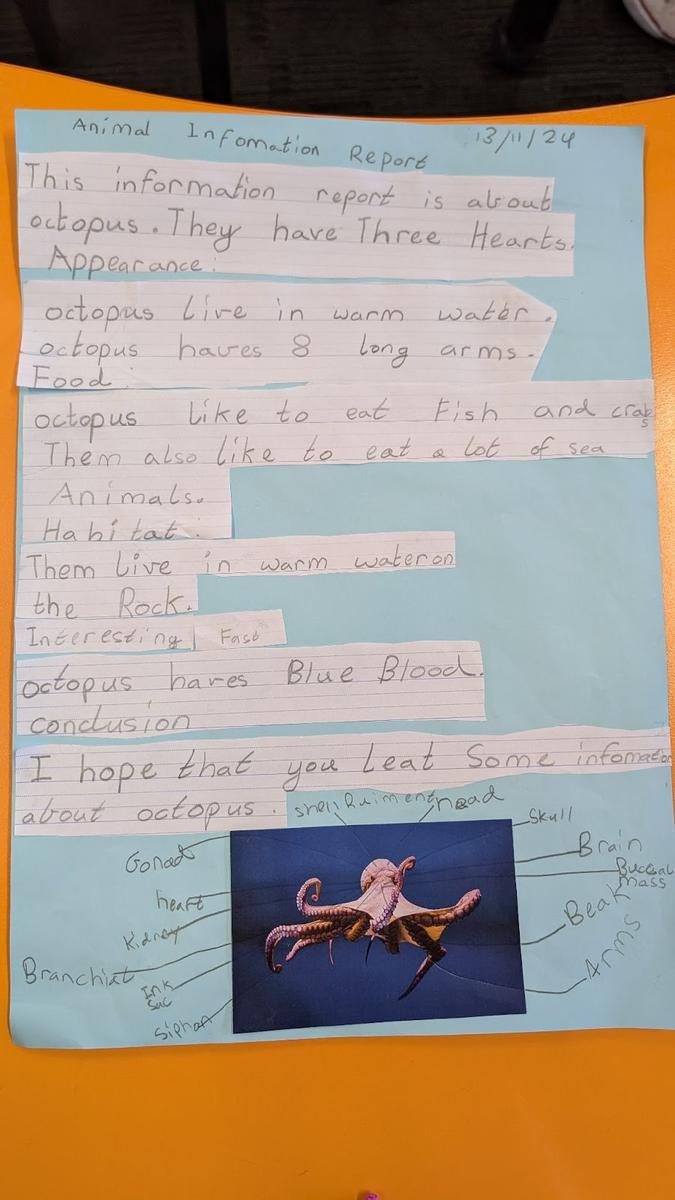 Animal Infomation Report
13/11/24
This information report is about
octopus. They have Three Hearts.
Appearance:
octopus live in warm water.
octopus haves 8 long arms.
Food:
octopus like to eat Fish and crabs
Them also like to eat a lot of sea
Animals.
Habitat:
Them live in warm water on
the Rock.
Interesting Fast
octopus haves Blue Blood.
conclusion
I hope that you leat Some infomation
about octopus.
shell Ruiment
head
Skull
Gonad
Brain
Buccal
mass
heart
Beak
Kidney
Arms
Branchiat
Ink
Sac
Siphan